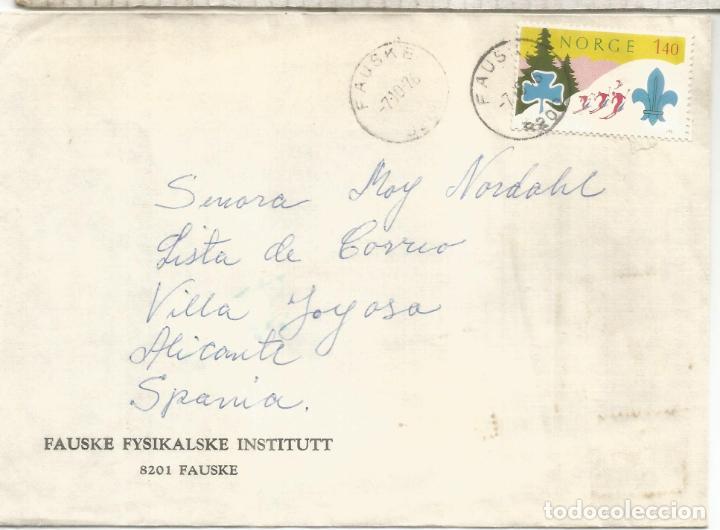 FAUSKE
-7.10.76
FAUSKE
8201
NORGE 140
Senora Moy Nordahl
Lista de Correo
Villa Joyosa
Alicante
Spania.
FAUSKE FYSIKALSKE INSTITUTT
8201 FAUSKE
todocoleccion.net